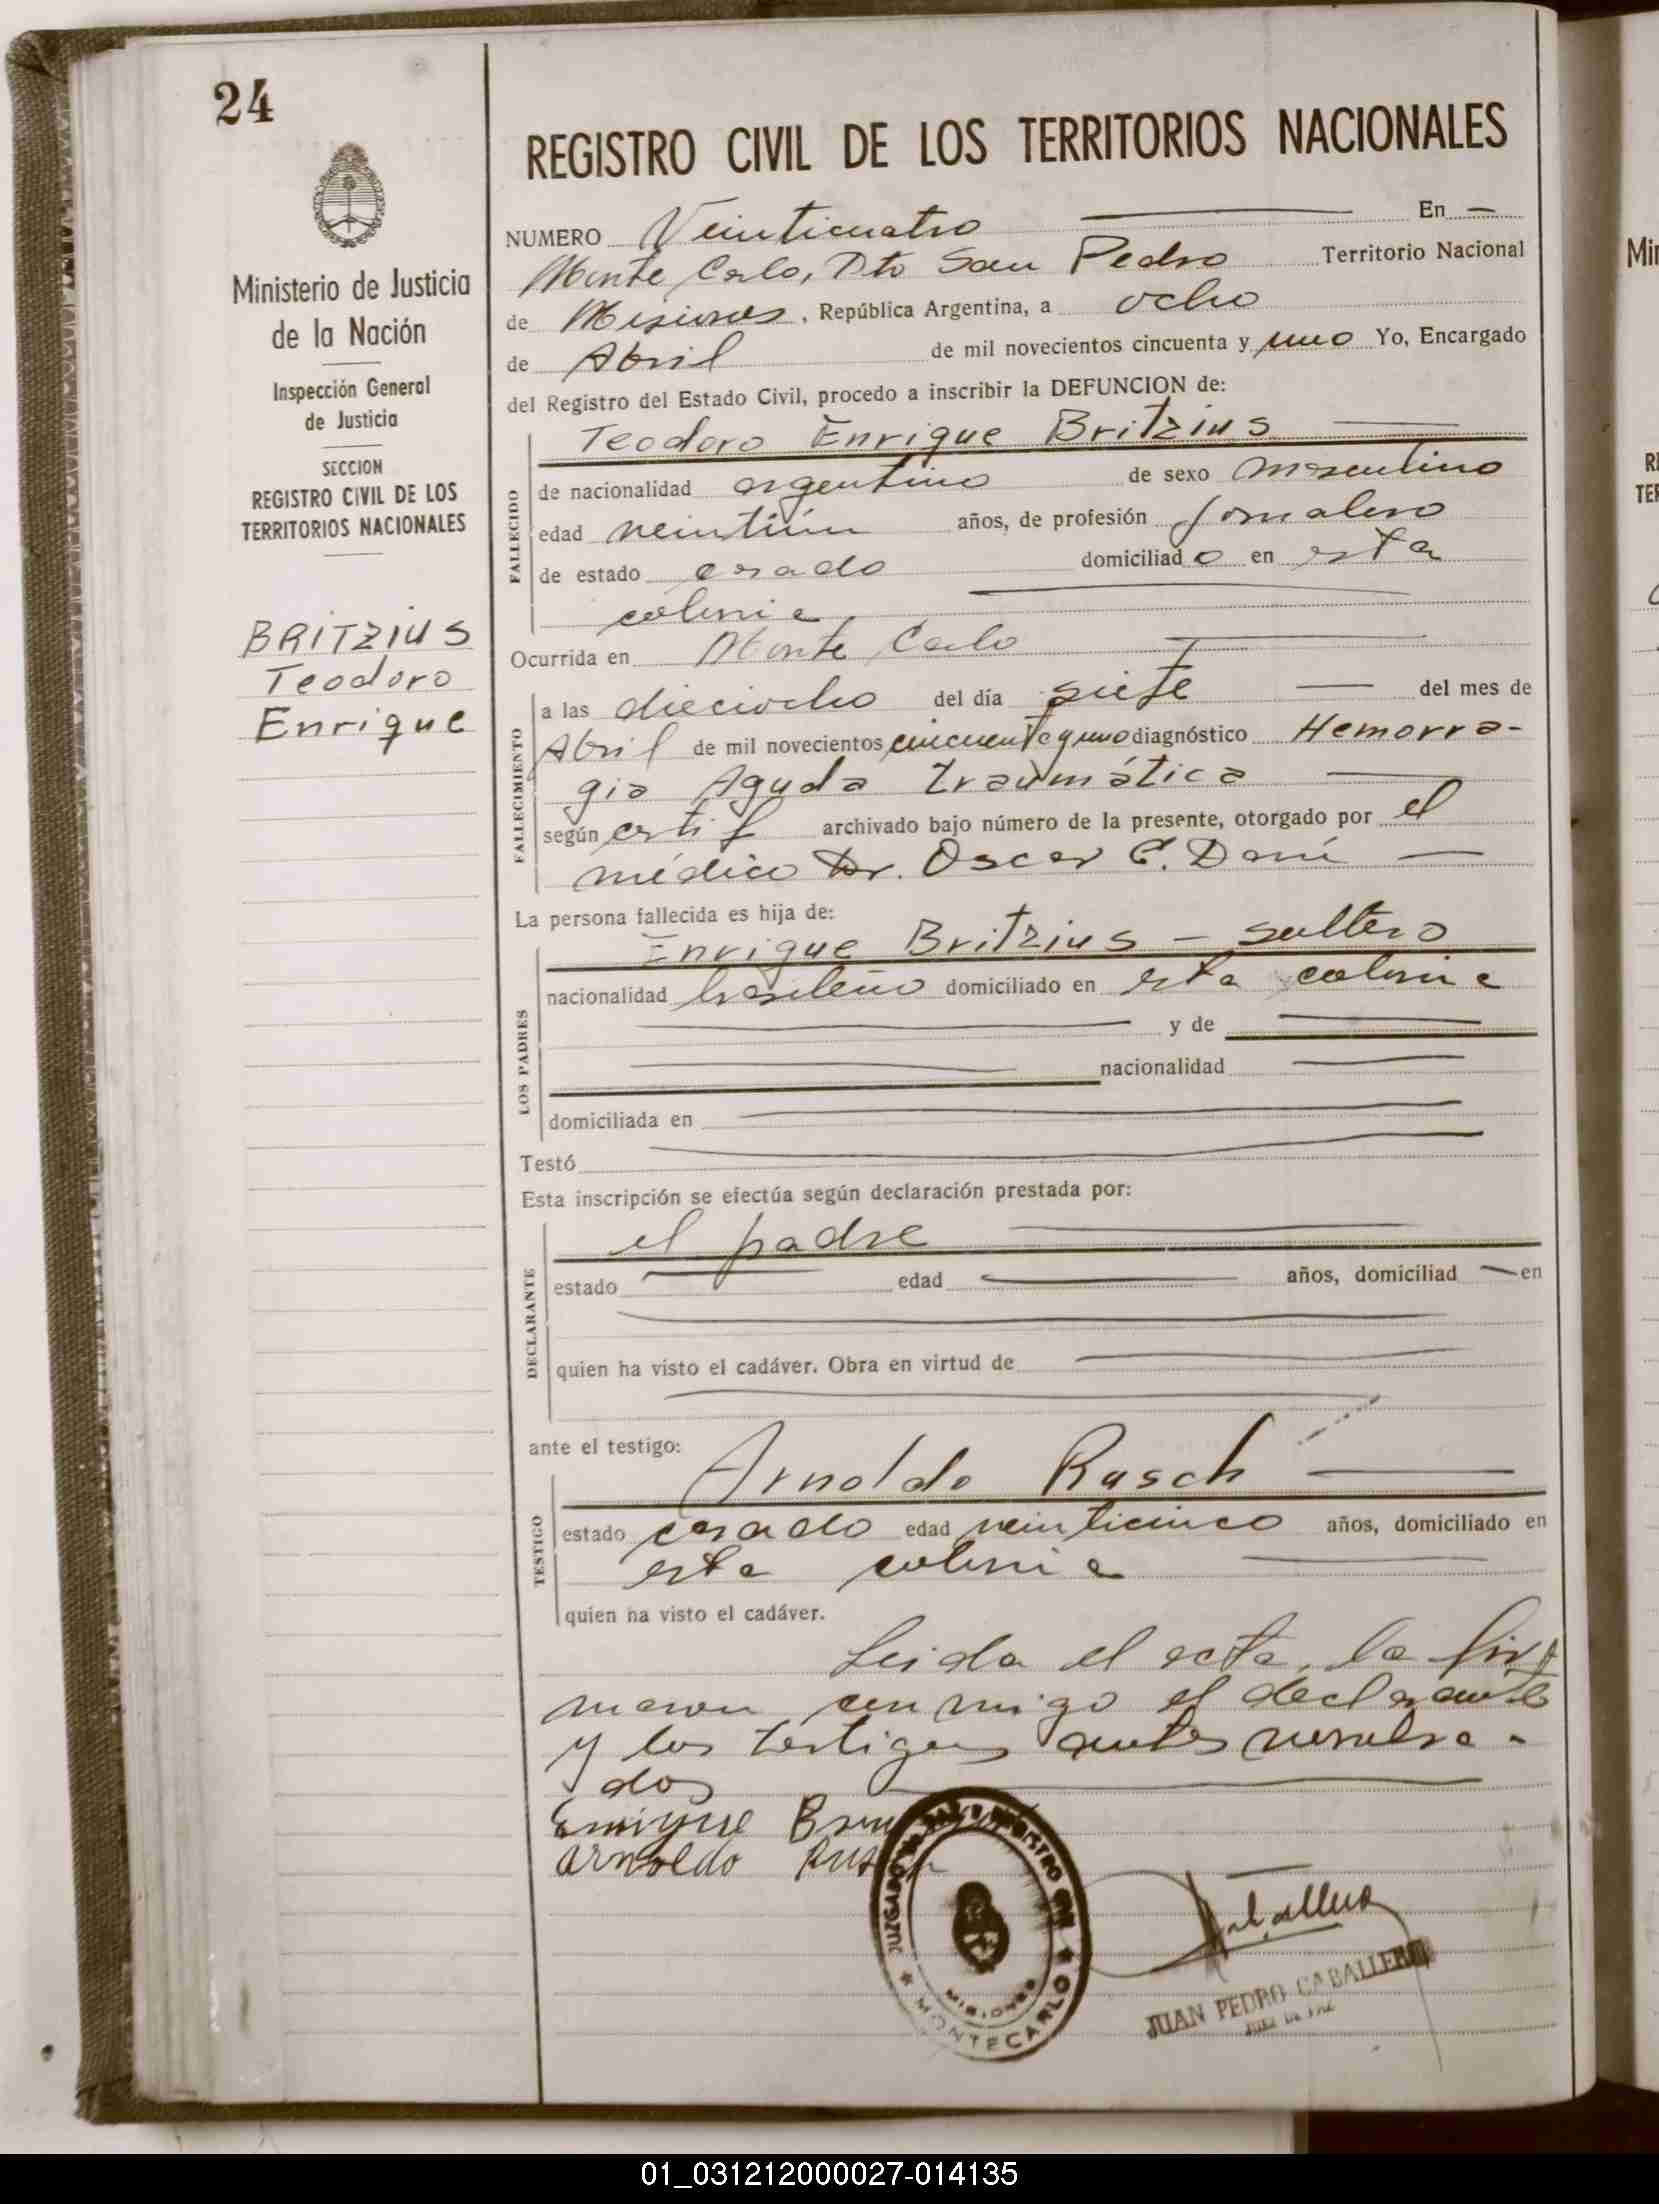 24
Ministerio de Justicia
de la Nación
Inspección General
de Justicia
SECCION
REGISTRO CIVIL DE LOS
TERRITORIOS NACIONALES
BRITZIUS
Teodoro
Enrique
REGISTRO CIVIL DE LOS TERRITORIOS NACIONALES
NUMERO Veinticuatro — En —
Monte Carlo, Dto San Pedro Territorio Nacional
de Misiones, República Argentina, a ocho
de Abril de mil novecientos cincuenta y uno Yo, Encargado
del Registro del Estado Civil, procedo a inscribir la DEFUNCION de:
Teodoro Enrique Britzius —
FALLECIDO
de nacionalidad argentino de sexo masculino
edad veintiún años, de profesión jornalero
de estado casado domiciliado en esta
colonia —
Ocurrida en Monte Carlo —
FALLECIMIENTO
a las dieciocho del día siete — del mes de
Abril de mil novecientos cincuenta y uno diagnóstico Hemorra-
gia Aguda Traumática —
según certif archivado bajo número de la presente, otorgado por el
médico Dr. Oscar C. —
La persona fallecida es hija de:
Enrique Britzius – soltero
LOS PADRES
nacionalidad brasileño domiciliado en esta colonia
— y de —
— nacionalidad —
domiciliada en —
Testó —
Esta inscripción se efectúa según declaración prestada por:
el padre —
DECLARANTE
estado — edad — años, domiciliad — en
—
quien ha visto el cadáver. Obra en virtud de —
—
ante el testigo:
Arnoldo Rasch —
TESTIGO
estado casado edad veinticinco años, domiciliado en
esta colonia —
quien ha visto el cadáver.
Leida el acta, la fir
maron conmigo el declarante
y los testigos antes nombra-
dos —
Enrique
Arnoldo
JUZGADO DE PAZ Y REGISTRO CIVIL
MISIONES
★ MONTECARLO ★
JUAN PEDRO CABALLERO
JUEZ DE PAZ
Min
RE
TER
01_031212000027-014135